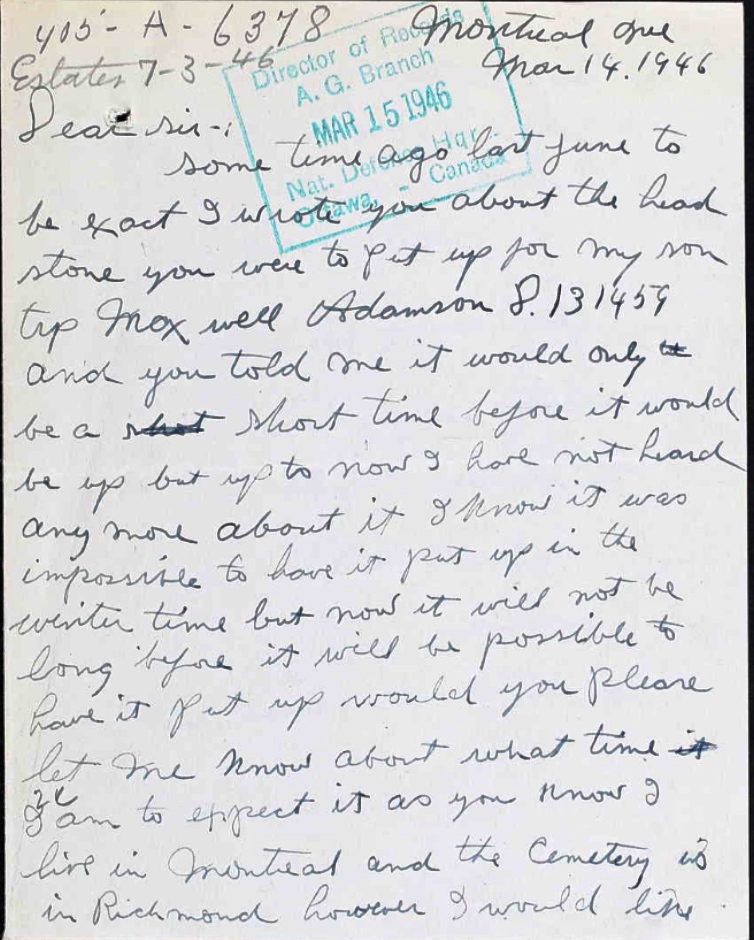 405- A - 6378
Montreal Que
Estates 7-3-46
Mar 14.1946
Director of Records
A. G. Branch
MAR 15 1946
Nat. Defence Hqr.
Ottawa - Canada
Dear sir-:
some time ago last June to
be exact I wrote you about the head
stone you were to put up for my son
trp Max well Adamson D.131459
and you told me it would only it
be a shot short time before it would
be up but up to now I have not heard
any more about it I know it was
impossible to have it put up in the
winter time but now it will not be
long before it will be possible to
have it put up would you please
let me know about what time it
I am to expect it as you know I
live in Montreal and the Cemetery is
in Richmond however I would like